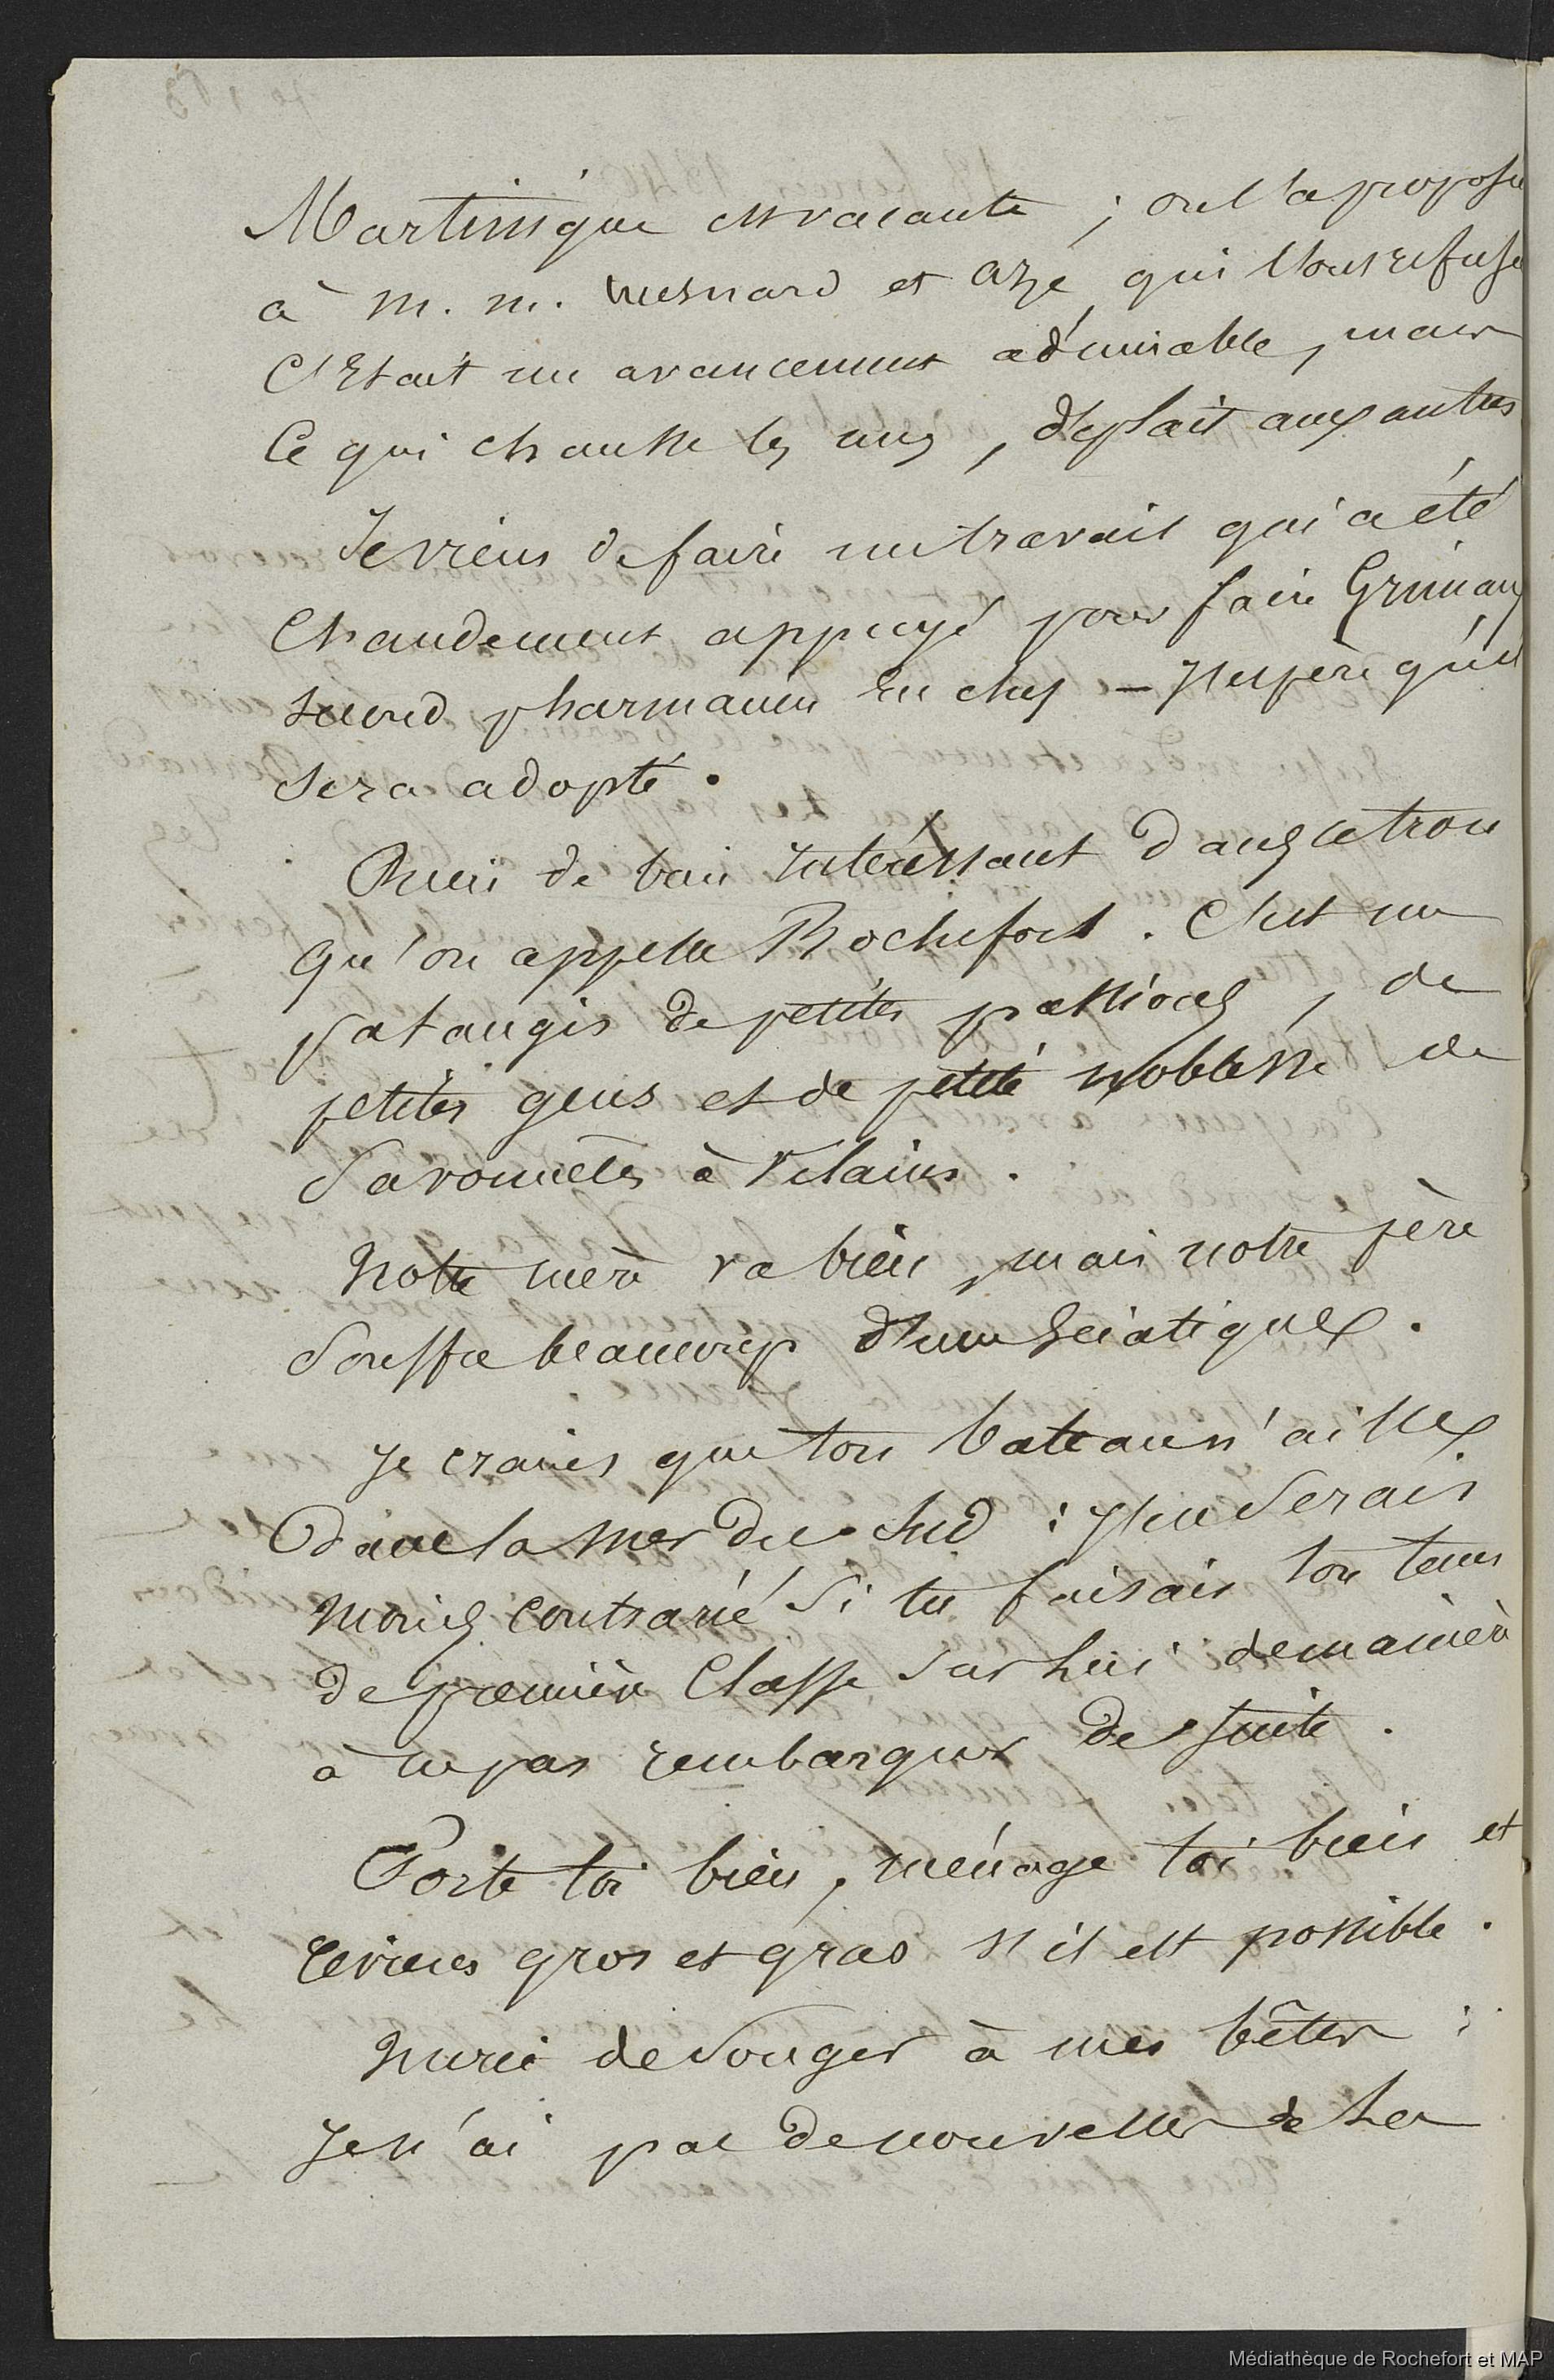 Martinique est vacante ; on l'a proposée
à m. m. mesnard et azé, qui l'ont refusé
C'Etait un avancement admirable, mais
Ce qui chausse les uns, déplait aux autres
Je viens de faire un travail qui a été
Chaudement appuyé pour faire Grimaux
second pharmacien en chef – J'espère qu'il
sera adopté.
Rien de bien Interessant dans ce trou
qu'on appelle Rochefort. C'est un
pataugis de petites passions, de
petites gens et de petite noblesse de
Savonnetes à Vilains.
Notre mère va bien, mais notre père
souffre beaucoup d'une Sciatique.
Je crains que ton bateau n'aille
Dans la Mer du Sud : J'en serais
moins contrarié Si tu faisais ton tems
de première Classe sur lui de manière
à ne pas rembarquer de suite.
Porte toi bien, ménage toi bien et
reviens gros et gras s'il est possible.
Merci de songer à mes bêtes :
Je n'ai pas de nouvelles de
Médiathèque de Rochefort et MAP